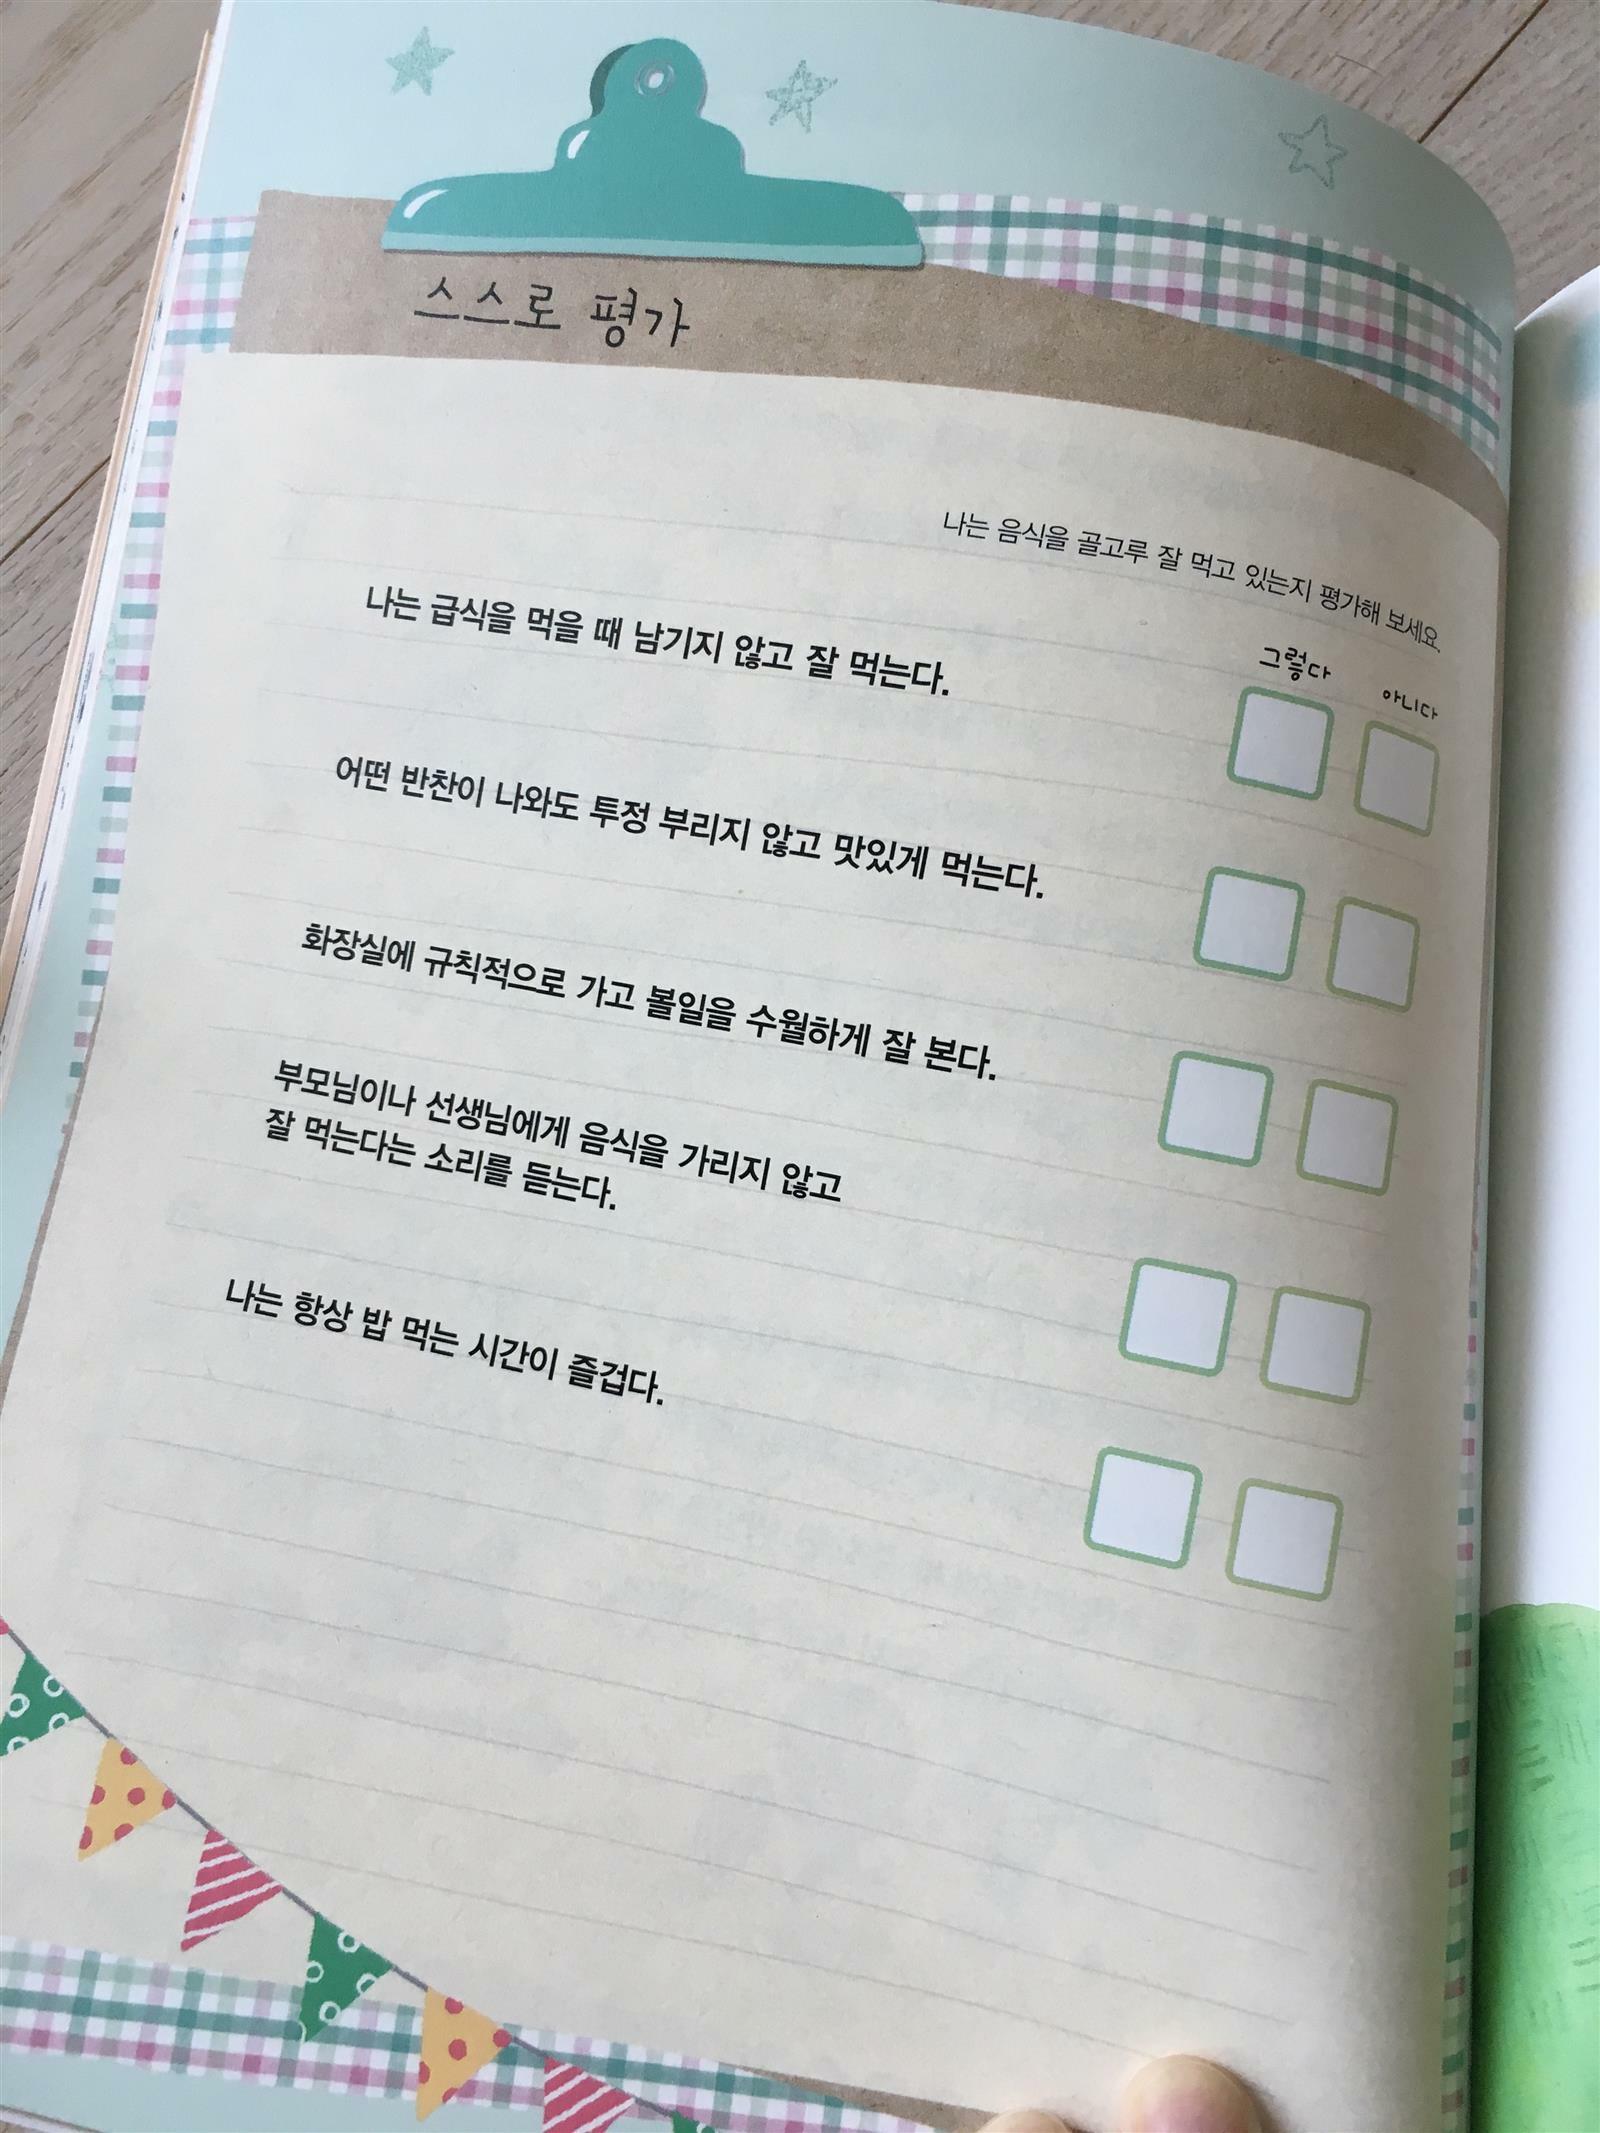 스스로 평가
나는 음식을 골고루 잘 먹고 있는지 평가해 보세요.
그렇다 아니다
나는 급식을 먹을 때 남기지 않고 잘 먹는다.
어떤 반찬이 나와도 투정 부리지 않고 맛있게 먹는다.
화장실에 규칙적으로 가고 볼일을 수월하게 잘 본다.
부모님이나 선생님에게 음식을 가리지 않고
잘 먹는다는 소리를 듣는다.
나는 항상 밥 먹는 시간이 즐겁다.